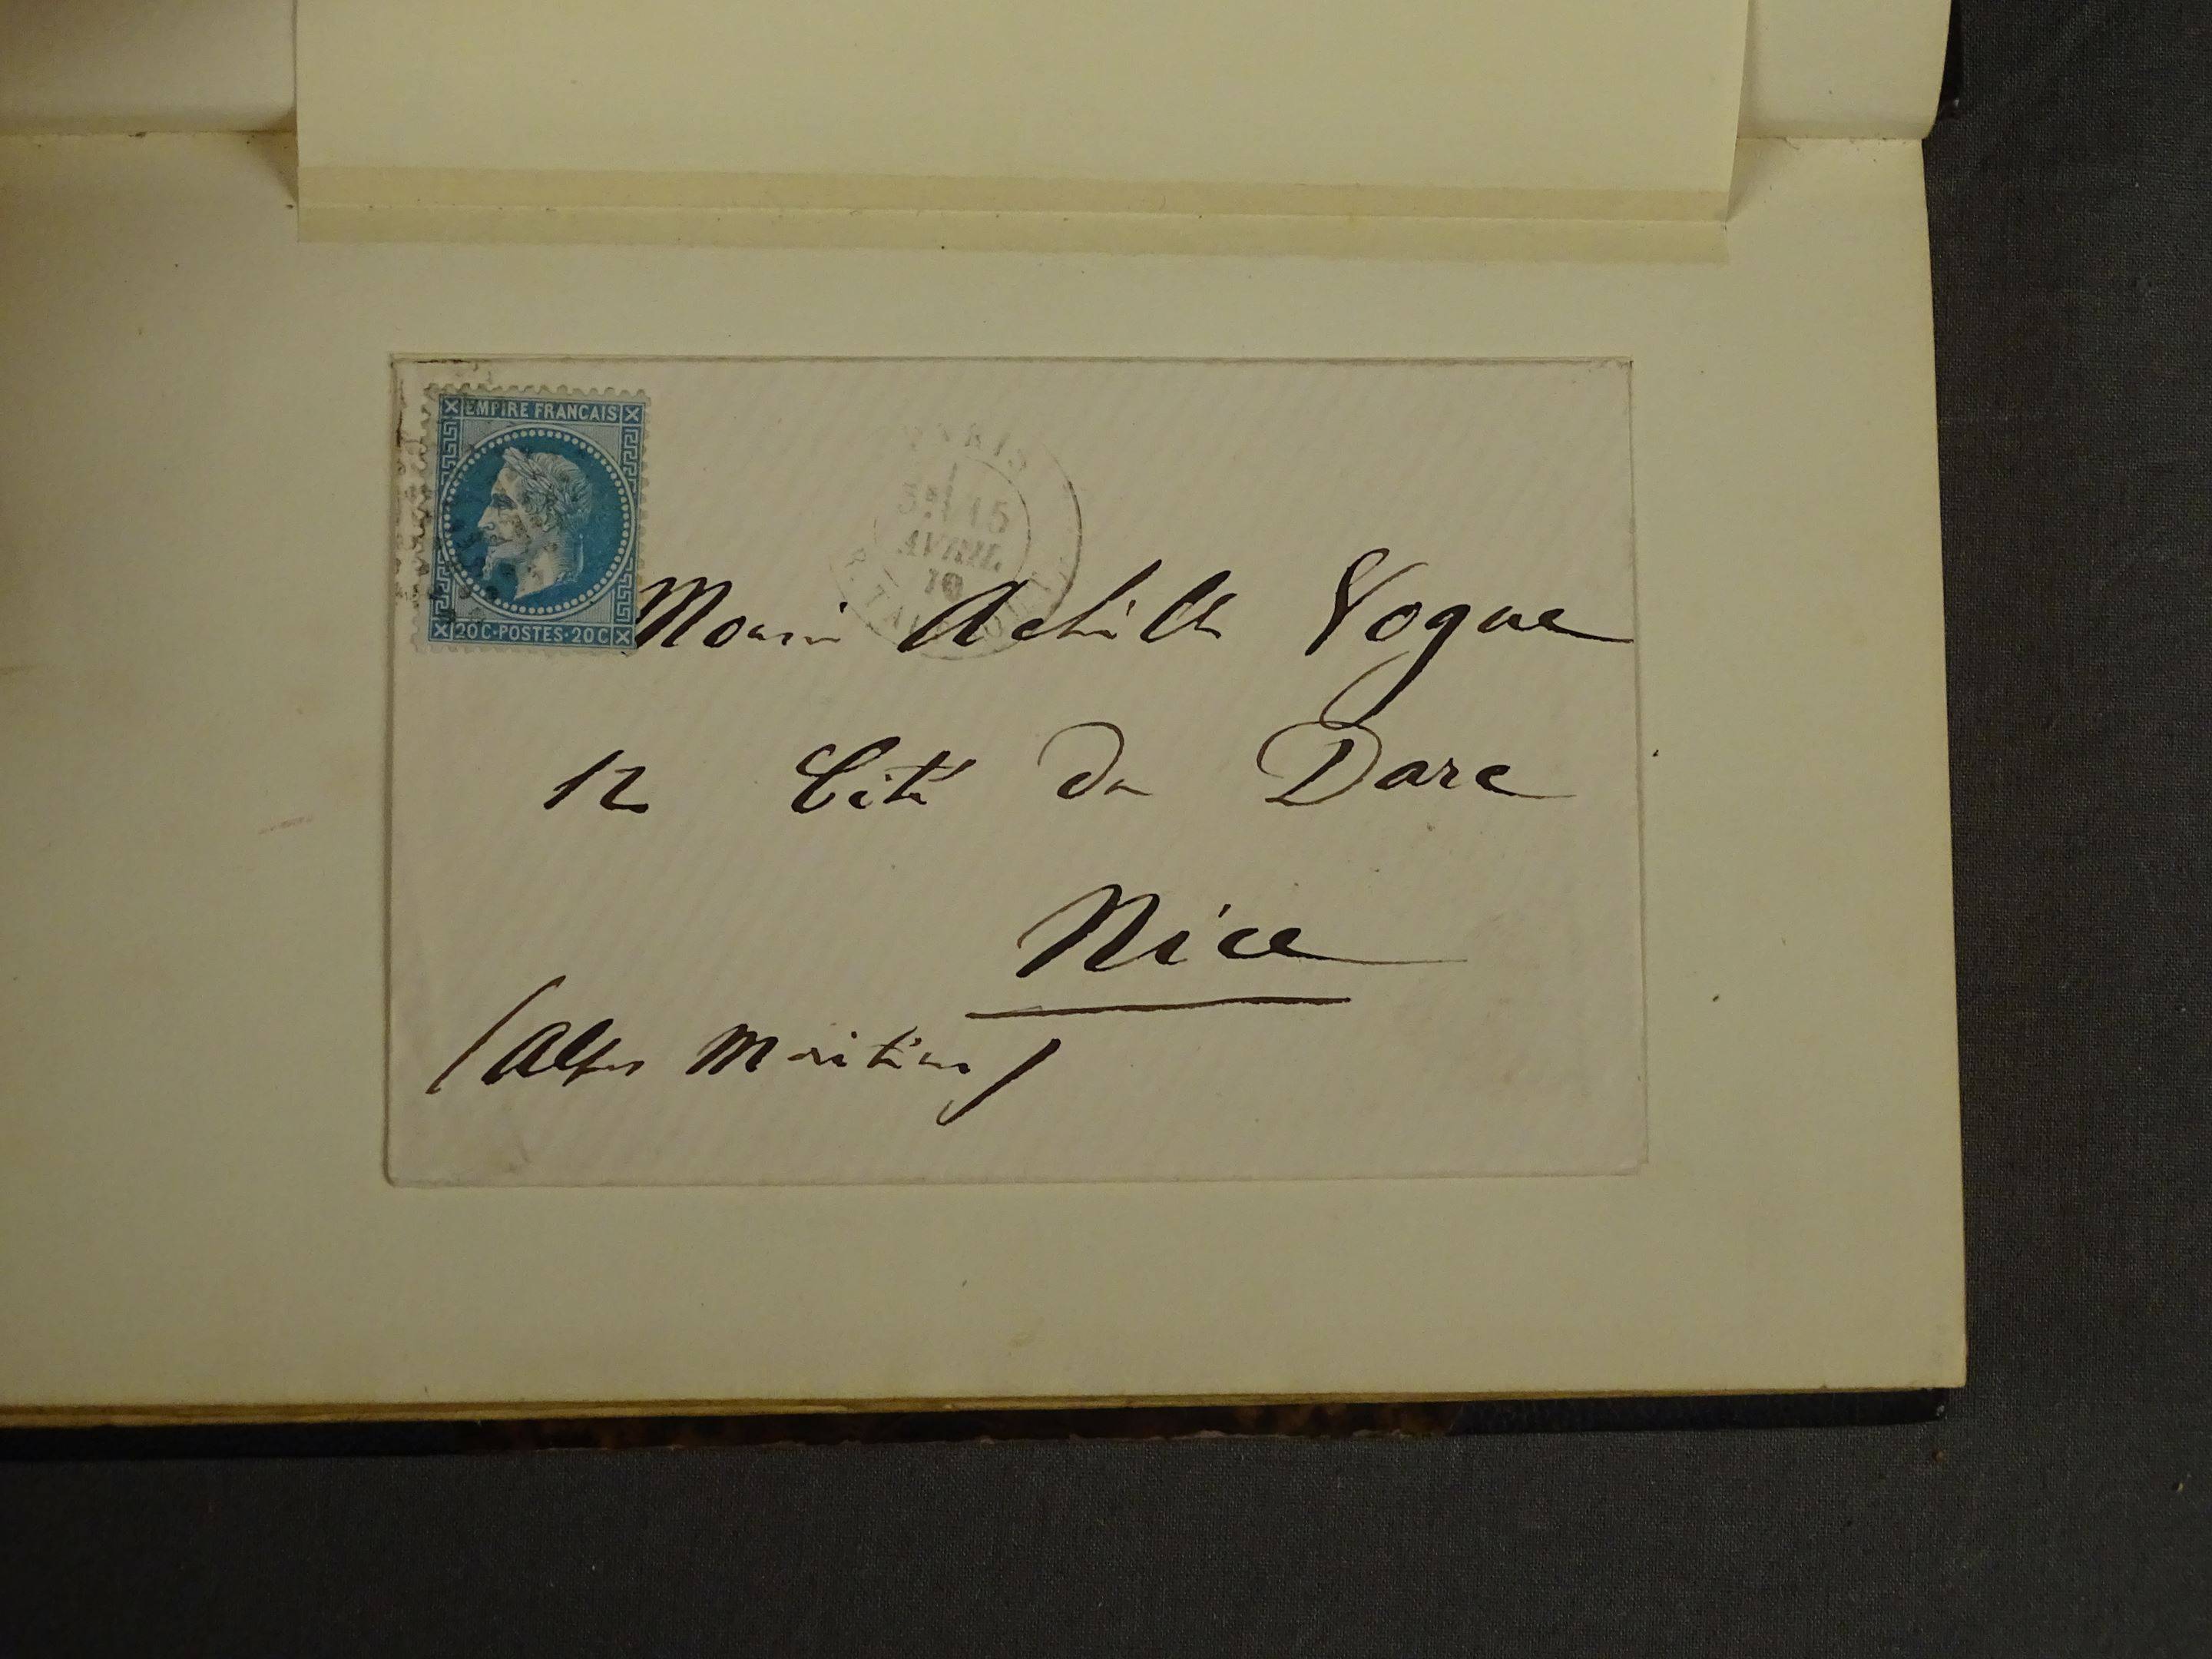 EMPIRE FRANCAIS
20 C·POSTES·20 C
PARIS
15
AVRIL
70
R. TAITBOUT
Monsieur Achille Vogue
12 Cité du Parc
Nice
(Alpes Maritimes)